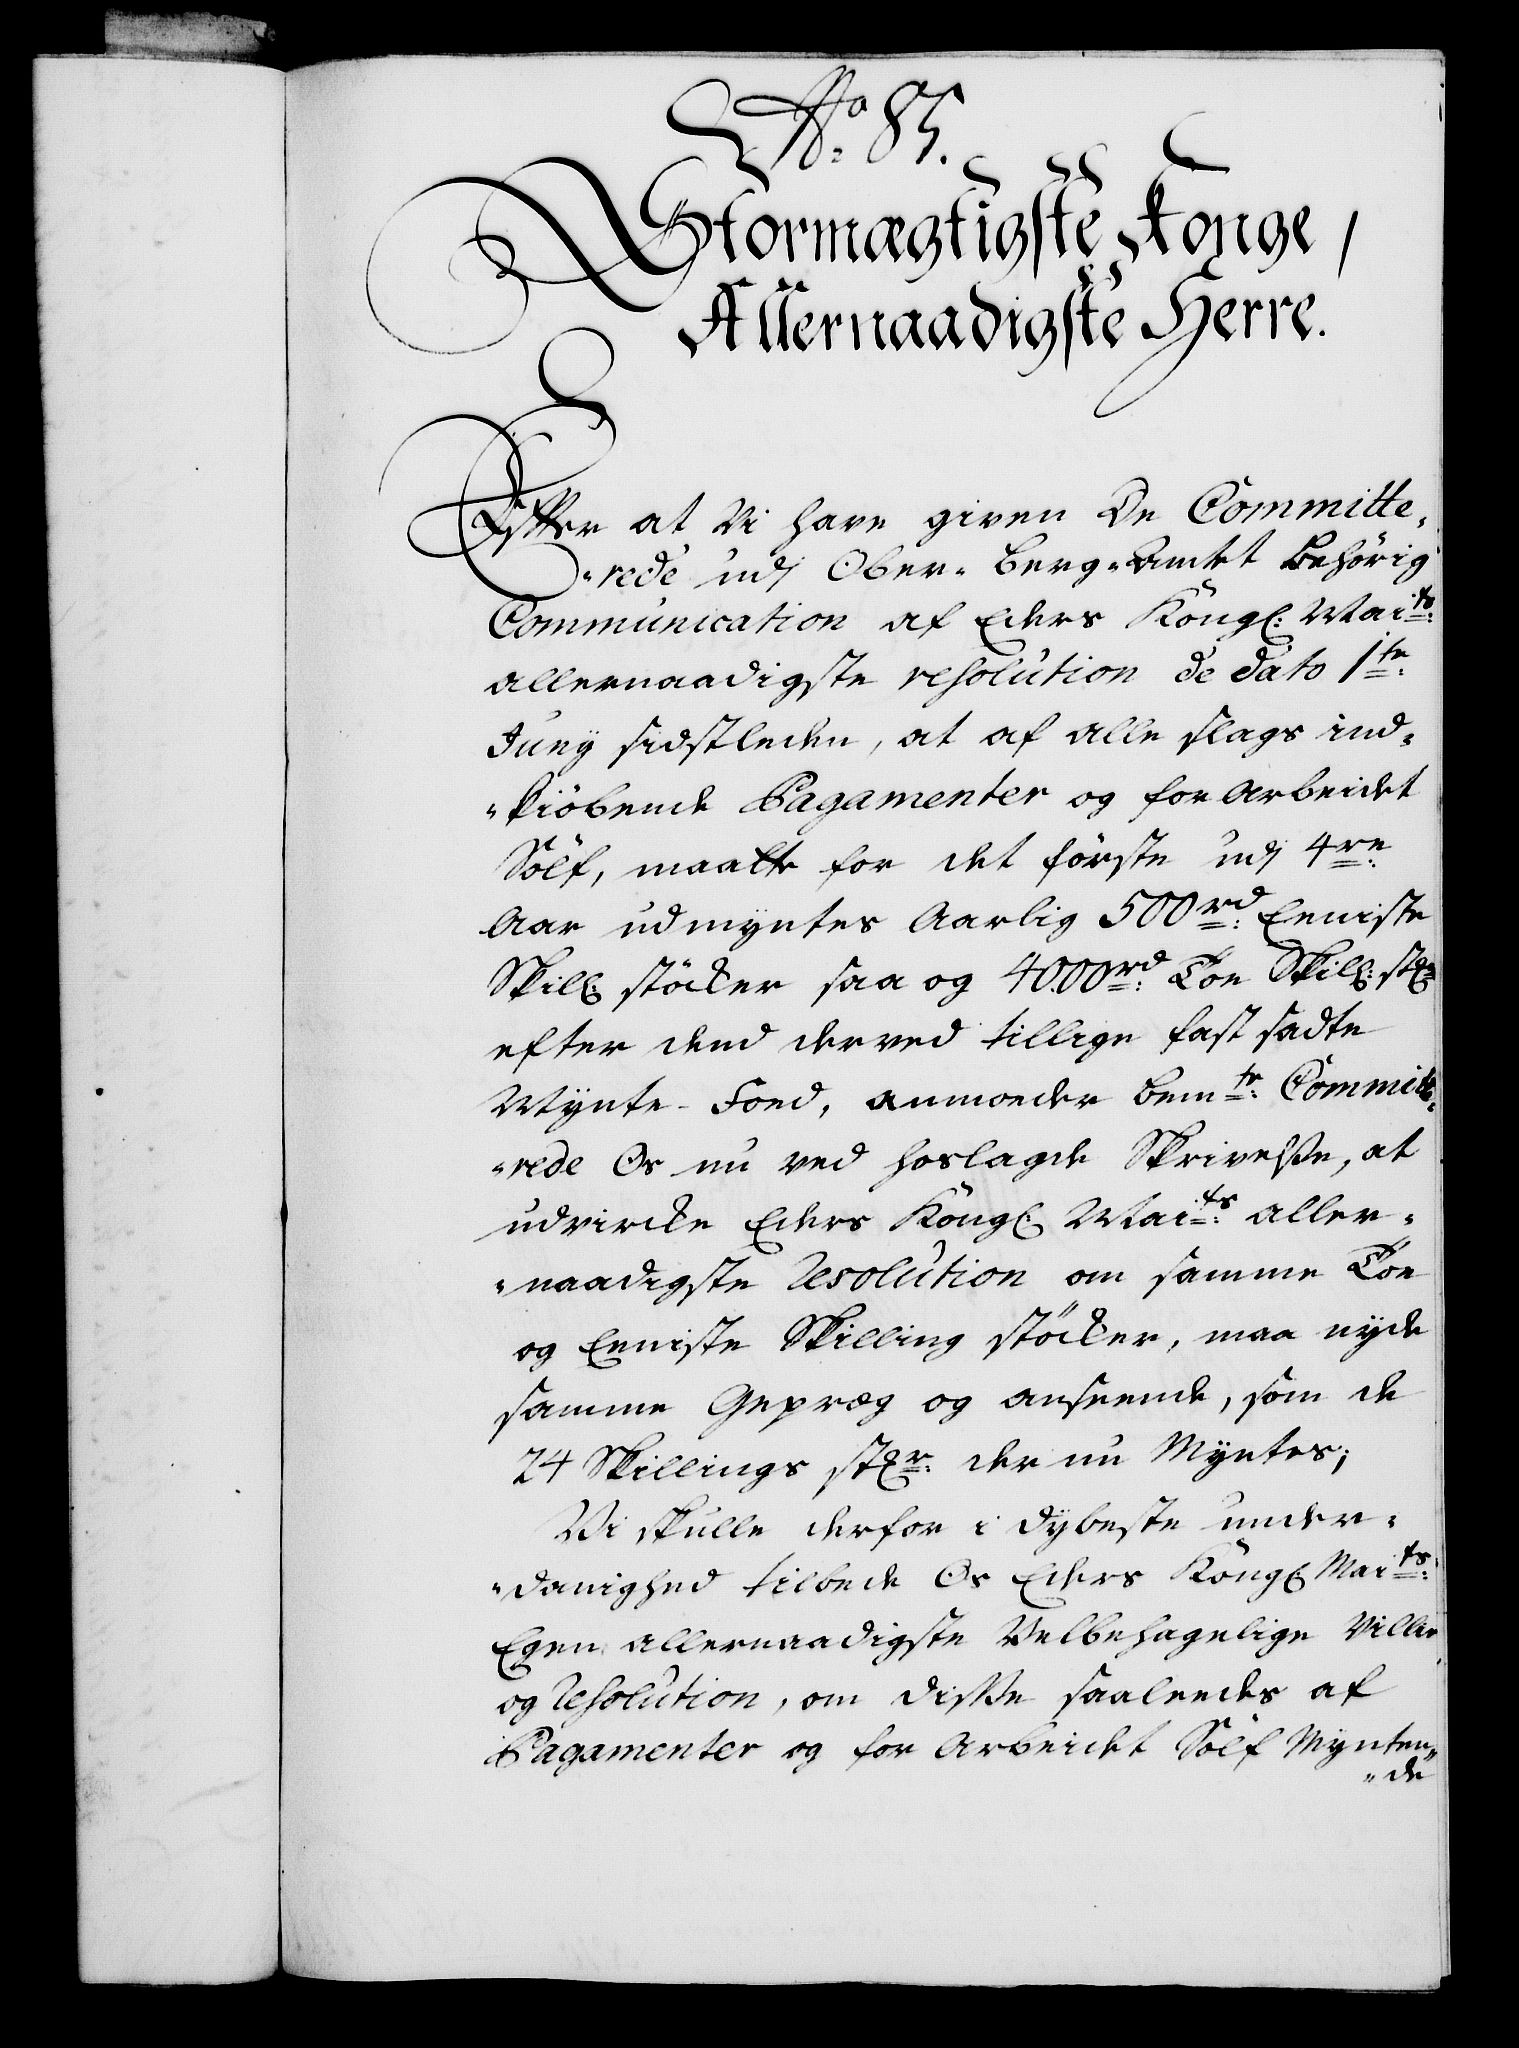 No. 85.
Stormægtigste Konge,
Allernaadigste Herre.
Efter at Vi have given De Committe-
-rede udj Ober-Berg-Amtet Behörig
Communication af Eders Kongl: Maits:
allernaadigste resolution de dato 1te:
Juny sidstleden, at af alle slags ind-
-kiöbende Pagamenter og forarbeidet
Sölf, maatte for det förste udj 4re:
Aar udmyntes Aarlig 500rd: Eeniste
Skill: stöcker saa og 4000rd: Toe Skill: stkr
efter dend derved tillige fast sadte
Mynte-Foed, anmoeder bemte: Committe-
-rede Os nu ved hoslagde Skrivelße, at
udvircke Eders Kongl: Maits: aller-
-naadigste Resolution om samme Toe
og Eeniste Skilling stöcker, maa nyde
samme Gepræg og anseende, som de
24 Skillings stkr: der nu Myntes;
Vi skulle derfor i dybeste under-
-danighed tilbede Os Eders Kongl: Maits:
Egen allernaadigste Velbehagelige Villie
og Resolution, om diße saaledes af
Pagamenter og forarbeidet Sölf Mynten-
-de